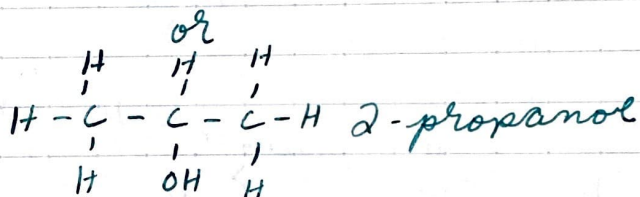 or
H H H
H - C - C - C - H 2-propanol
H OH H